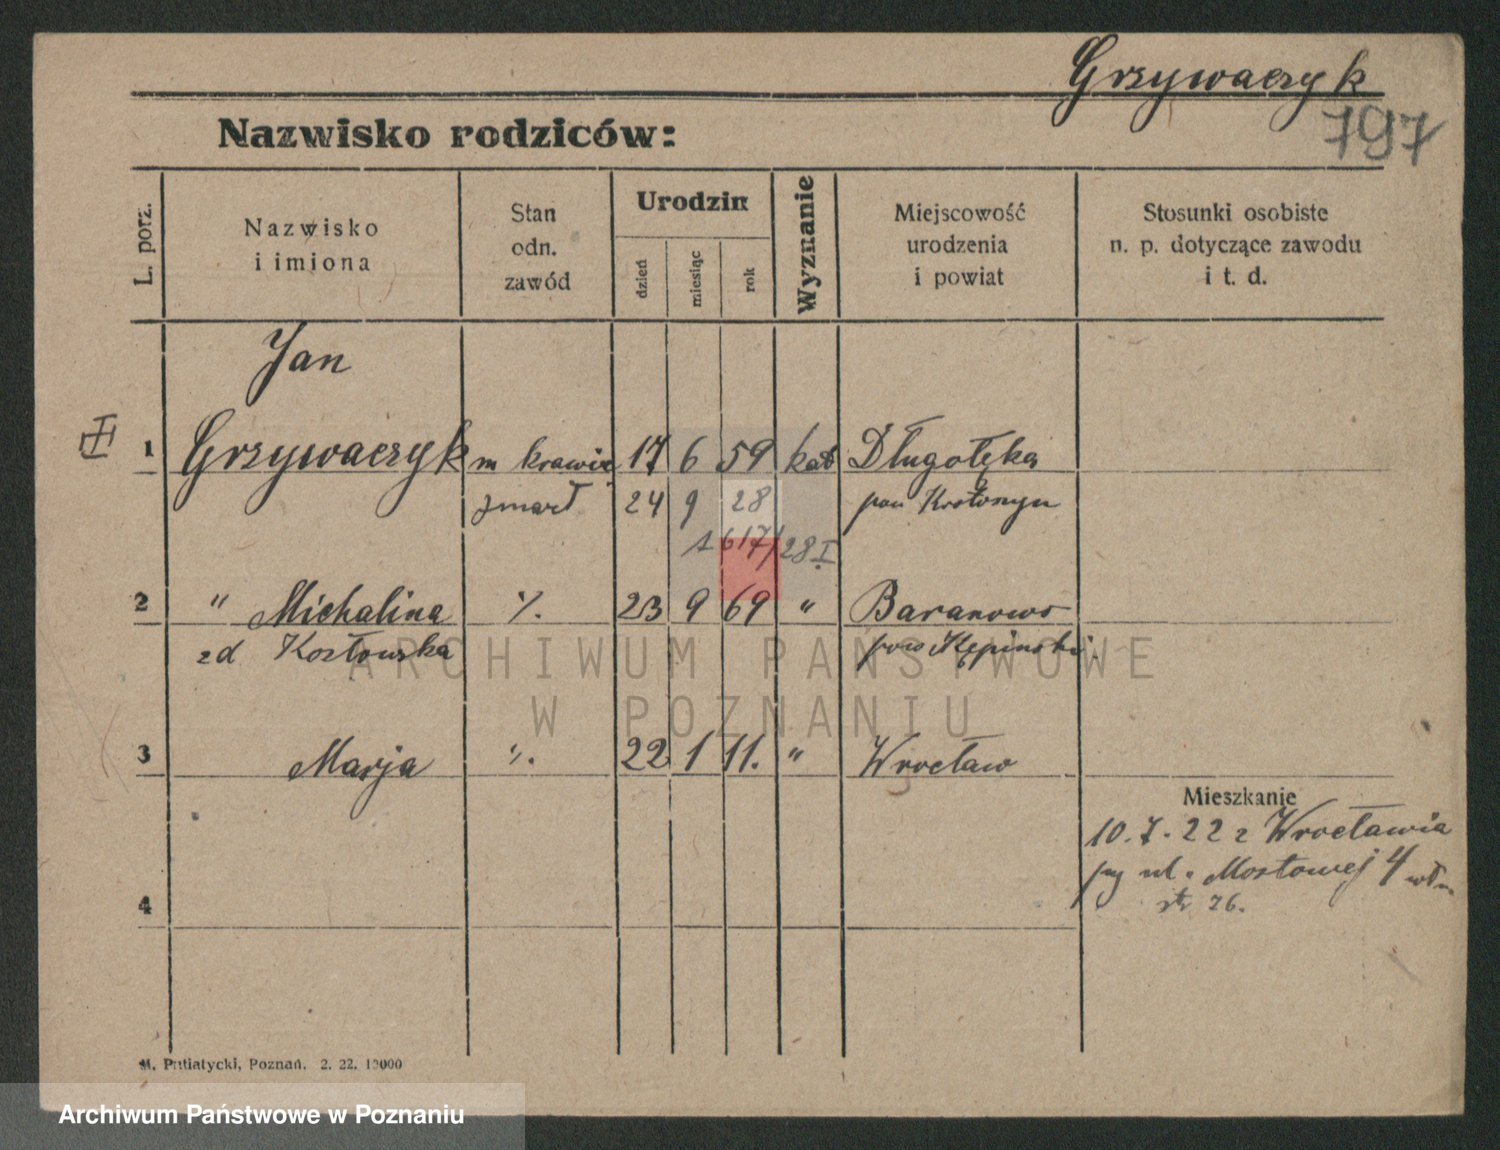 Grzywaczyk
797
Nazwisko rodziców:
L. porz.
Nazwisko
i imiona
Stan
odn.
zawód
Urodzin
dzień
miesiąc
rok
Wyznanie
Miejscowość
urodzenia
i powiat
Stosunki osobiste
n. p. dotyczące zawodu
i t. d.
Jan
1 Grzywaczyk m krawiec 17 6 59 kat Długołęka
zmarł 24 9 28 pow Krotoszyn
1617/28 I
2 " Michalina %. 23 9 69 " Baranowo
zd Kozłowska pow Kępiński
3 Marja %. 22 1 11. " Wrocław
Mieszkanie
10.7.22 z Wrocławia
ul. Mostowej 4
4 str 26.
M. Putiatycki, Poznań. 2. 22. 10000
ARCHIWUM PAŃSTWOWE
W POZNANIU
Archiwum Państwowe w Poznaniu